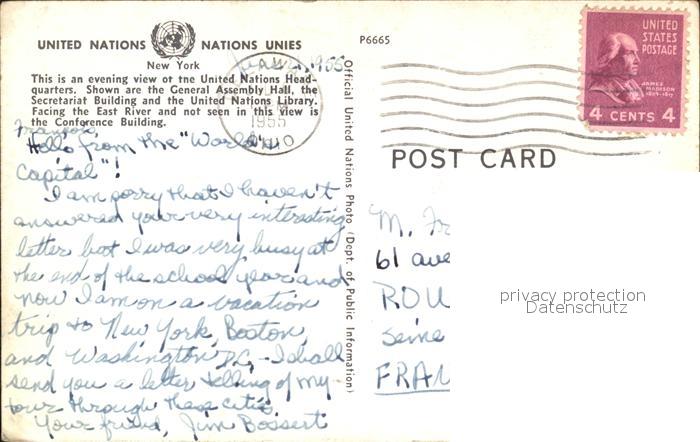 UNITED NATIONS NATIONS UNIES
New York
This is an evening view of the United Nations Head-
quarters. Shown are the General Assembly Hall, the
Secretariat Building and the United Nations Library.
Facing the East River and not seen in this view is
the Conference Building.
1955
OHIO
P6665
UNITED
STATES
POSTAGE
JAMES
MADISON
1809-1817
4 CENTS 4
POST CARD
Official United Nations Photo (Dept. of Public Information)
1955
François,
Hello from the "World's
Capital"!
I am sorry that I haven't
answered your very interesting
letter but I was very busy at
the end of the school year and
now I am on a vacation
trip to New York, Boston,
and Washington D.C. - I shall
send you a letter telling of my
tour through these cities.
Your friend, Jim Bossert
M. Fr
61 ave
ROU
Seine
FRAN
privacy protection
Datenschutz